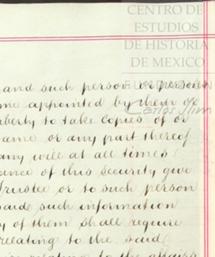 CENTRO DE
ESTUDIOS
DE HISTORIA
DE MEXICO
and such person or persons
me appointed by them or
liberty to take copies of or
same or any part thereof
any will at all times
ance of this security give
Trustee or to such person
said such information
y of them shall require
relating to the said
relating to the affairs